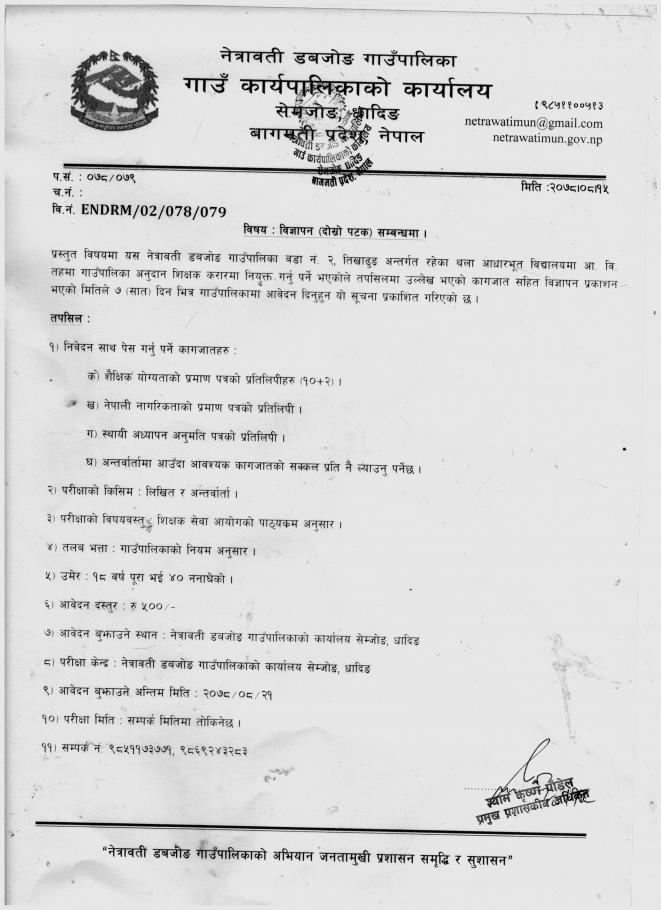 नेत्रावती डबजोङ गाउँपालिका
गाउँ कार्यपालिकाको कार्यालय
सेमजोङ, धादिङ
बागमती प्रदेश, नेपाल
९८५११००५१३
netrawatimun@gmail.com
netrawatimun.gov.np
गाउँ कार्यपालिकाको कार्यालय
सेमजोङ धादिङ
बागमती प्रदेश, नेपाल
प.सं. : ०७८/०७९
च.नं. :
वि.नं. ENDRM/02/078/079
मिति :२०७८।०८।१५
विषय : विज्ञापन (दोस्रो पटक) सम्बन्धमा ।
प्रस्तुत विषयमा यस नेत्रावती डबजोङ गाउँपालिका वडा नं. २, तिखाढुङ अन्तर्गत रहेका थला आधारभूत विद्यालयमा आ. वि.
तहमा गाउँपालिका अनुदान शिक्षक करारमा नियुक्त गर्नु पर्ने भएकोले तपसिलमा उल्लेख भएको कागजात सहित विज्ञापन प्रकाशन
भएको मितिले ७ (सात) दिन भित्र गाउँपालिकामा आवेदन दिनुहुन यो सूचना प्रकाशित गरिएको छ ।
तपसिल :
१) निवेदन साथ पेस गर्नु पर्ने कागजातहरु :
क) शैक्षिक योग्यताको प्रमाण पत्रको प्रतिलिपीहरु (१०+२) ।
ख) नेपाली नागरिकताको प्रमाण पत्रको प्रतिलिपी ।
ग) स्थायी अध्यापन अनुमति पत्रको प्रतिलिपी ।
घ) अन्तर्वार्तामा आउँदा आवश्यक कागजातको सक्कल प्रति नै ल्याउनु पर्नेछ ।
२) परीक्षाको किसिम : लिखित र अन्तर्वार्ता ।
३) परीक्षाको विषयवस्तु : शिक्षक सेवा आयोगको पाठ्यक्रम अनुसार ।
४) तलब भत्ता : गाउँपालिकाको नियम अनुसार ।
५) उमेर : १८ बर्ष पूरा भई ४० ननाघेको ।
६) आवेदन दस्तुर : रु ५००/-
७) आवेदन बुझाउने स्थान : नेत्रावती डबजोङ गाउँपालिकाको कार्यालय सेम्जोङ, धादिङ
८) परीक्षा केन्द्र : नेत्रावती डबजोङ गाउँपालिकाको कार्यालय सेम्जोङ, धादिङ
९) आवेदन बुझाउने अन्तिम मिति : २०७८/०८/२१
१०) परीक्षा मिति : सम्पर्क मितिमा तोकिनेछ ।
११) सम्पर्क नं. ९८५११७३७७१, ९८६९२४३२८३
श्याम कृष्ण पौडेल
प्रमुख प्रशासकीय अधिकृत
"नेत्रावती डबजोङ गाउँपालिकाको अभियान जनतामुखी प्रशासन समृद्धि र सुशासन"